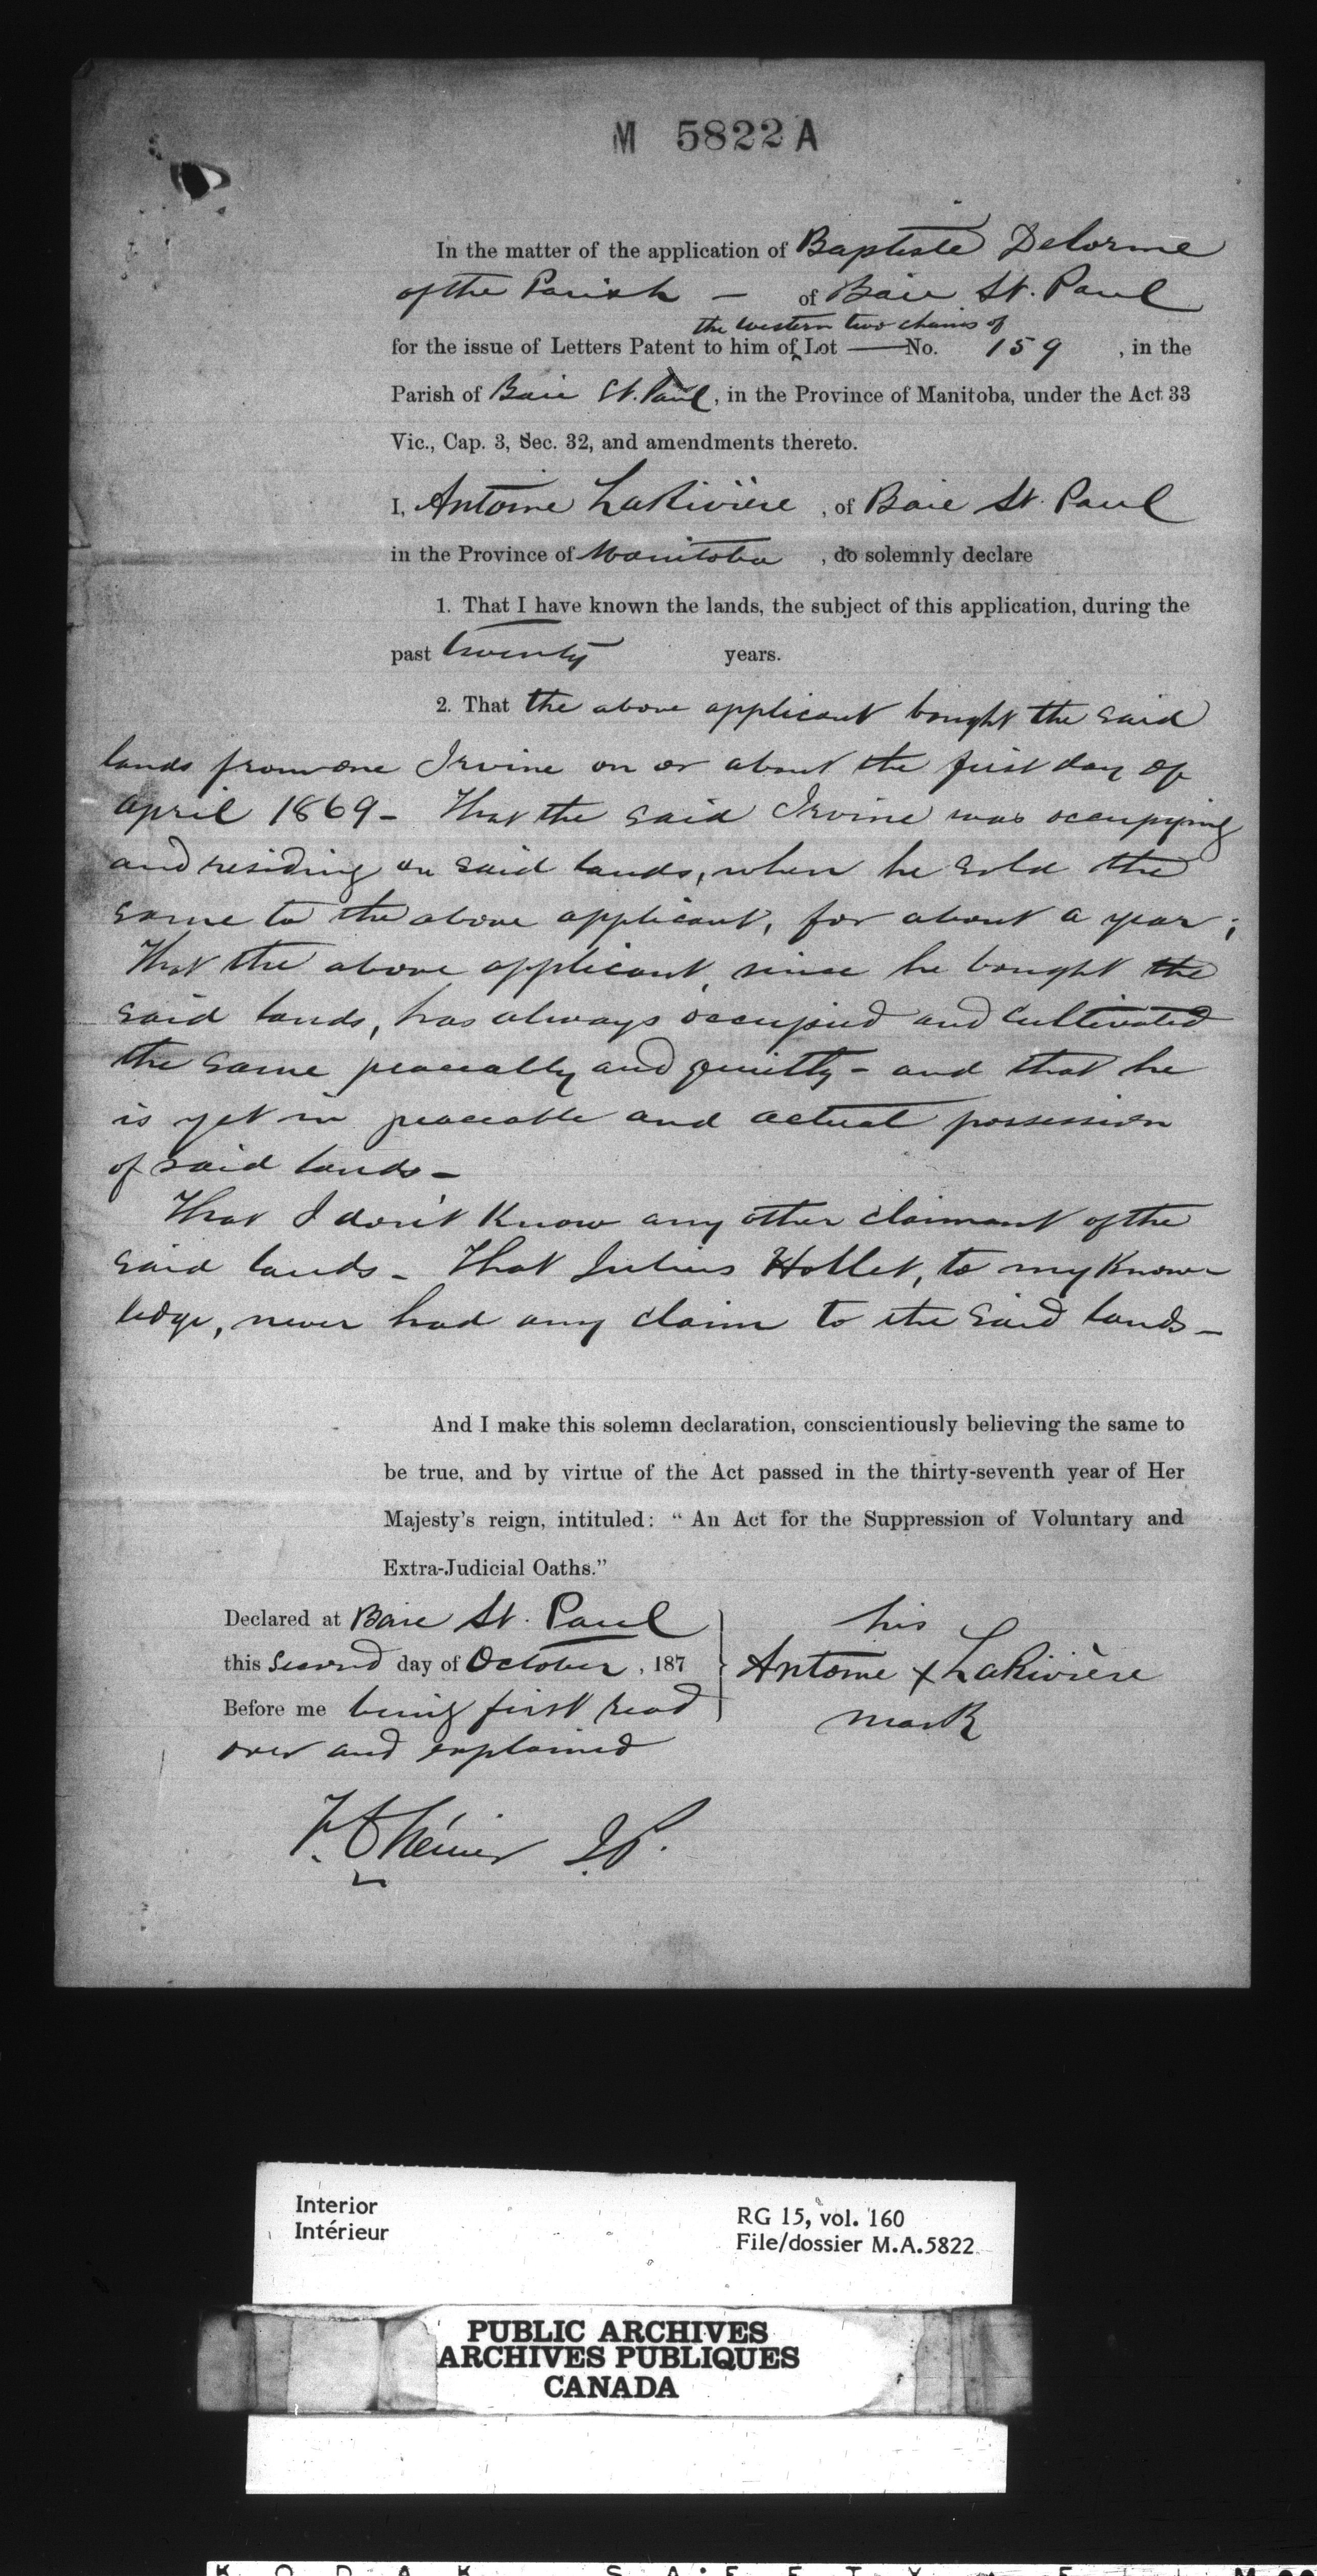 M 5822 A
In the matter of the application of Baptiste Delorme
of the Parish — of Baie St. Paul
the western two chains of
for the issue of Letters Patent to him of ^ Lot —— No. 159 , in the
Parish of Baie St. Paul, in the Province of Manitoba, under the Act 33
Vic., Cap. 3, Sec. 32, and amendments thereto.
I, Antoine LaRivière , of Baie St. Paul
in the Province of Manitoba , do solemnly declare
1. That I have known the lands, the subject of this application, during the
past twenty years.
2. That the above applicant bought the said
lands from one Irvine on or about the first day of
april 1869 - That the said Irvine was occupying
and residing on said lands, when he sold the
same to the above applicant, for about a year ;
That the above applicant, since he bought the
said lands, has always occupied and cultivated
the same peaceably and quietly - and that he
is yet in peaceable and actual possession
of said lands -
That I don't know any other claimant of the
said lands - That Julius Hollet, to my know-
ledge, never had any claim to the said lands -
And I make this solemn declaration, conscientiously believing the same to
be true, and by virtue of the Act passed in the thirty-seventh year of Her
Majesty's reign, intituled: " An Act for the Suppression of Voluntary and
Extra-Judicial Oaths."
Declared at Baie St. Paul
this second day of October , 187
Before me being first read
over and explained
his
Antoine x LaRivière
mark
J.P.
Interior
Intérieur
RG 15, vol. 160
File/dossier M.A.5822
PUBLIC ARCHIVES
ARCHIVES PUBLIQUES
CANADA